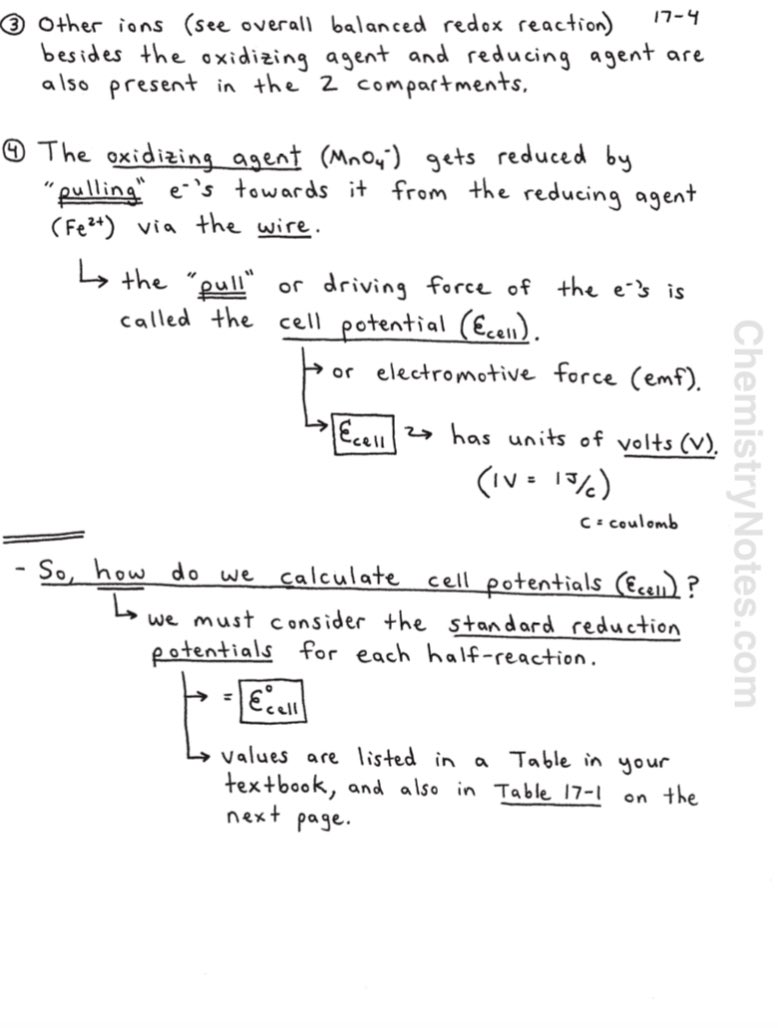 ③ Other ions (see overall balanced redox reaction) 17-4
besides the oxidizing agent and reducing agent are
also present in the 2 compartments.
④ The oxidizing agent (MnO₄⁻) gets reduced by
"pulling" e⁻'s towards it from the reducing agent
(Fe²⁺) via the wire.
↳ the "pull" or driving force of the e⁻'s is
called the cell potential (Ɛcell).
↳ or electromotive force (emf).
↳ Ɛcell → has units of volts (V).
(1V = 1 J/C)
C = coulomb
- So, how do we calculate cell potentials (Ɛcell)?
↳ we must consider the standard reduction
potentials for each half-reaction.
↳ = Ɛ°cell
↳ values are listed in a Table in your
textbook, and also in Table 17-1 on the
next page.
ChemistryNotes.com